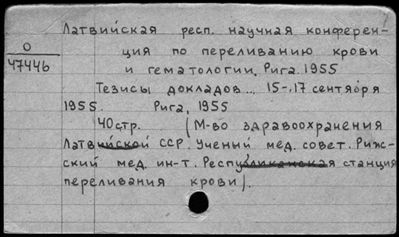 Латвийская респ. научная конферен-
О
47446
ция по переливанию крови
и гематологии. Рига. 1955
Тезисы докладов... 15-.17 сентября
1955. Рига, 1955
40стр. (М-во здравоохранения
Латвийской ССР. Ученый мед. совет. Риж-
ский мед. ин-т. Республиканская станция
переливания крови).